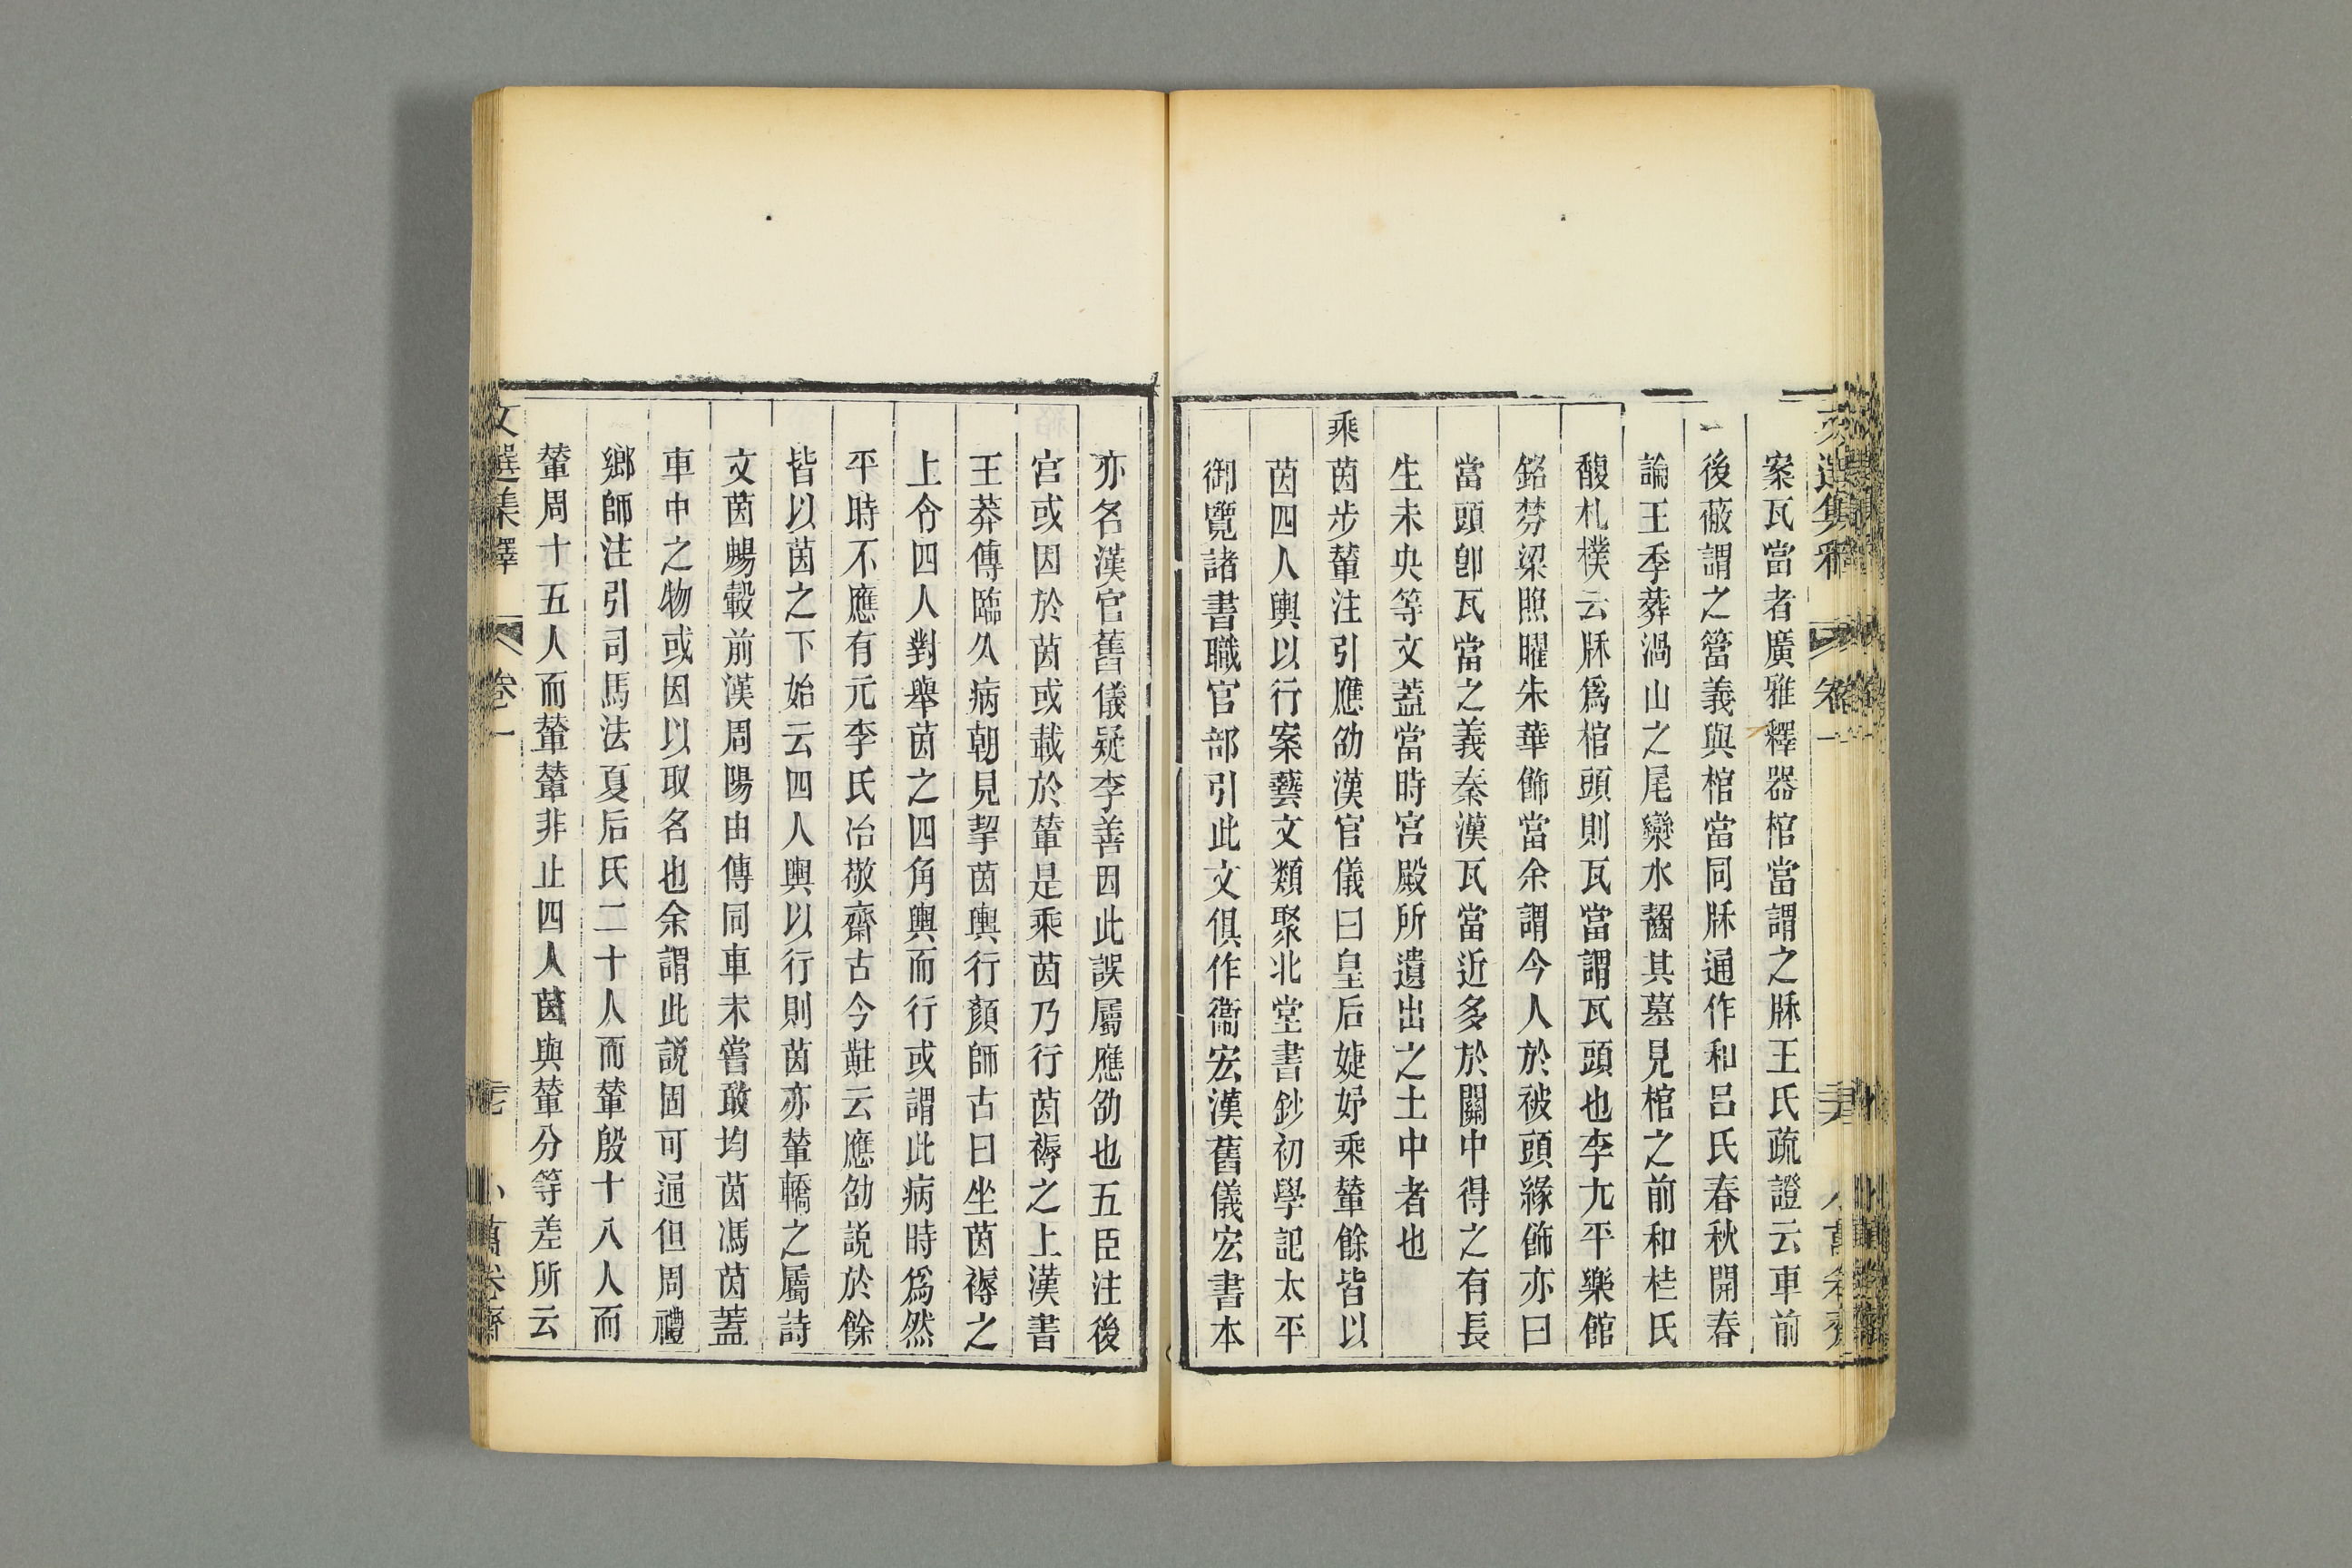 案瓦當者廣雅釋器棺當謂之𣖕王氏疏證云車前
後蔽謂之簹義與棺當同𣖕通作和呂氏春秋開春
論王季葬渦山之尾欒水齧其墓見棺之前和桂氏
馥札樸云𣖕爲棺頭則瓦當謂瓦頭也李尤平樂館
銘棼梁照曜朱華飾當余謂今人於被頭緣飾亦曰
當頭卽瓦當之義秦漢瓦當近多於關中得之有長
生未央等文蓋當時宮殿所遺出之土中者也
乘茵步輦注引應劭漢官儀曰皇后婕妤乘輦餘皆以
茵四人輿以行案藝文類聚北堂書鈔初學記太平
御覽諸書職官部引此文俱作衞宏漢舊儀宏書本
亦名漢官舊儀疑李善因此誤屬應劭也五臣注後
宮或因於茵或載於輦是乘茵乃行茵褥之上漢書
王莽傳臨久病朝見挈茵輿行顏師古曰坐茵褥之
上令四人對舉茵之四角輿而行或謂此病時爲然
平時不應有元李氏冶敬齋古今黈云應劭說於餘
皆以茵之下始云四人輿以行則茵亦輦轎之屬詩
文茵暢轂前漢周陽由傳同車未嘗敢均茵馮茵蓋
車中之物或因以取名也余謂此說固可通但周禮
鄉師注引司馬法夏后氏二十人而輦殷十八人而
輦周十五人而輦輦非止四人茵與輦分等差所云
文選集釋 卷一 小萬卷齋